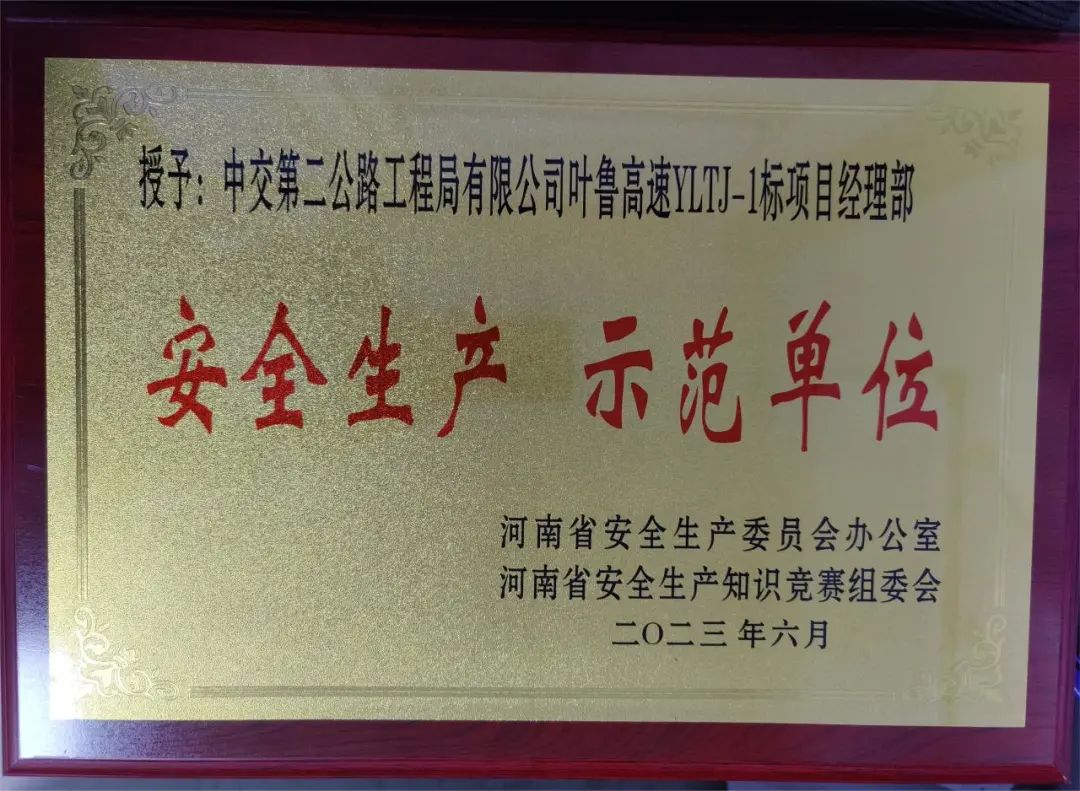 授予：中交第二公路工程局有限公司叶鲁高速YLTJ-1标项目经理部
安全生产 示范单位
河南省安全生产委员会办公室
河南省安全生产知识竞赛组委会
二〇二三年六月